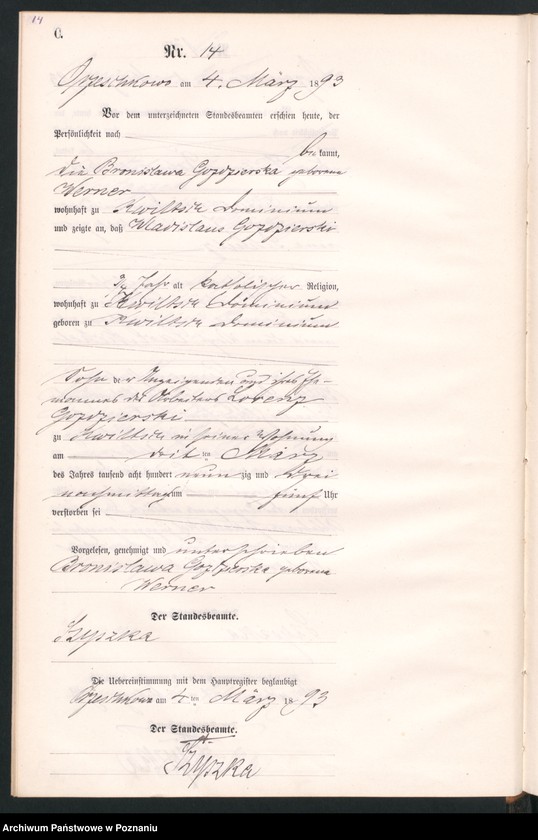 14
C.
Nr. 14
Orzeschkowo am 4. März 1893
Vor dem unterzeichneten Standesbeamten erschien heute, der
Persönlichkeit nach
bekannt,
die Bronislawa Gozdzierska geborene
Werner
wohnhaft zu Kwiltsch Dominium
und zeigte an, daß Wladislaus Gozdzierski
3/4 Jahr alt katholischer Religion,
wohnhaft zu Kwiltsch Dominium
geboren zu Kwiltsch Dominium
Sohn der Anzeigenden und ihres Ehe-
mannes des Arbeiters Lorenz
Gozdzierski
zu Kwiltsch in seiner Wohnung
am ten März
des Jahres tausend acht hundert neun zig und drei
nachmittags um fünf Uhr
verstorben sei
Vorgelesen, genehmigt und unterschrieben
Bronislawa Gozdzierska geborene
Werner
Der Standesbeamte.
Zyszka
Die Uebereinstimmung mit dem Hauptregister beglaubigt
Orzeschkowo am 4 ten März 1893
Der Standesbeamte.
Zyszka
Archiwum Państwowe w Poznaniu